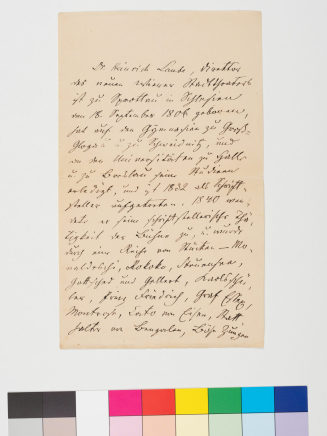 Dr Heinrich Laube, Direktor
des neuen Wiener Stadttheaters
ist zu Sprottau in Schlesien
am 18. September 1806 geboren,
hat auf den Gymnasien zu Groß-
Glogau u zu Schweidnitz, und
an den Universitäten zu Halle
u zu Breslau seine Studien
erledigt, und ist 1832 als Schrift-
steller aufgetreten. 1840 wen-
dete er seine schriftstellerische Thä-
tigkeit der Bühne zu, u wurde
durch eine Reihe von Stücken — Mo-
naldeschi, Rokoko, Struensee,
Gottsched und Gellert, Karlsschü-
ler, Prinz Friedrich, Graf Essex,
Montrose, Cato von Eisen, Statt
halter von Bengalen, Böse Zungen